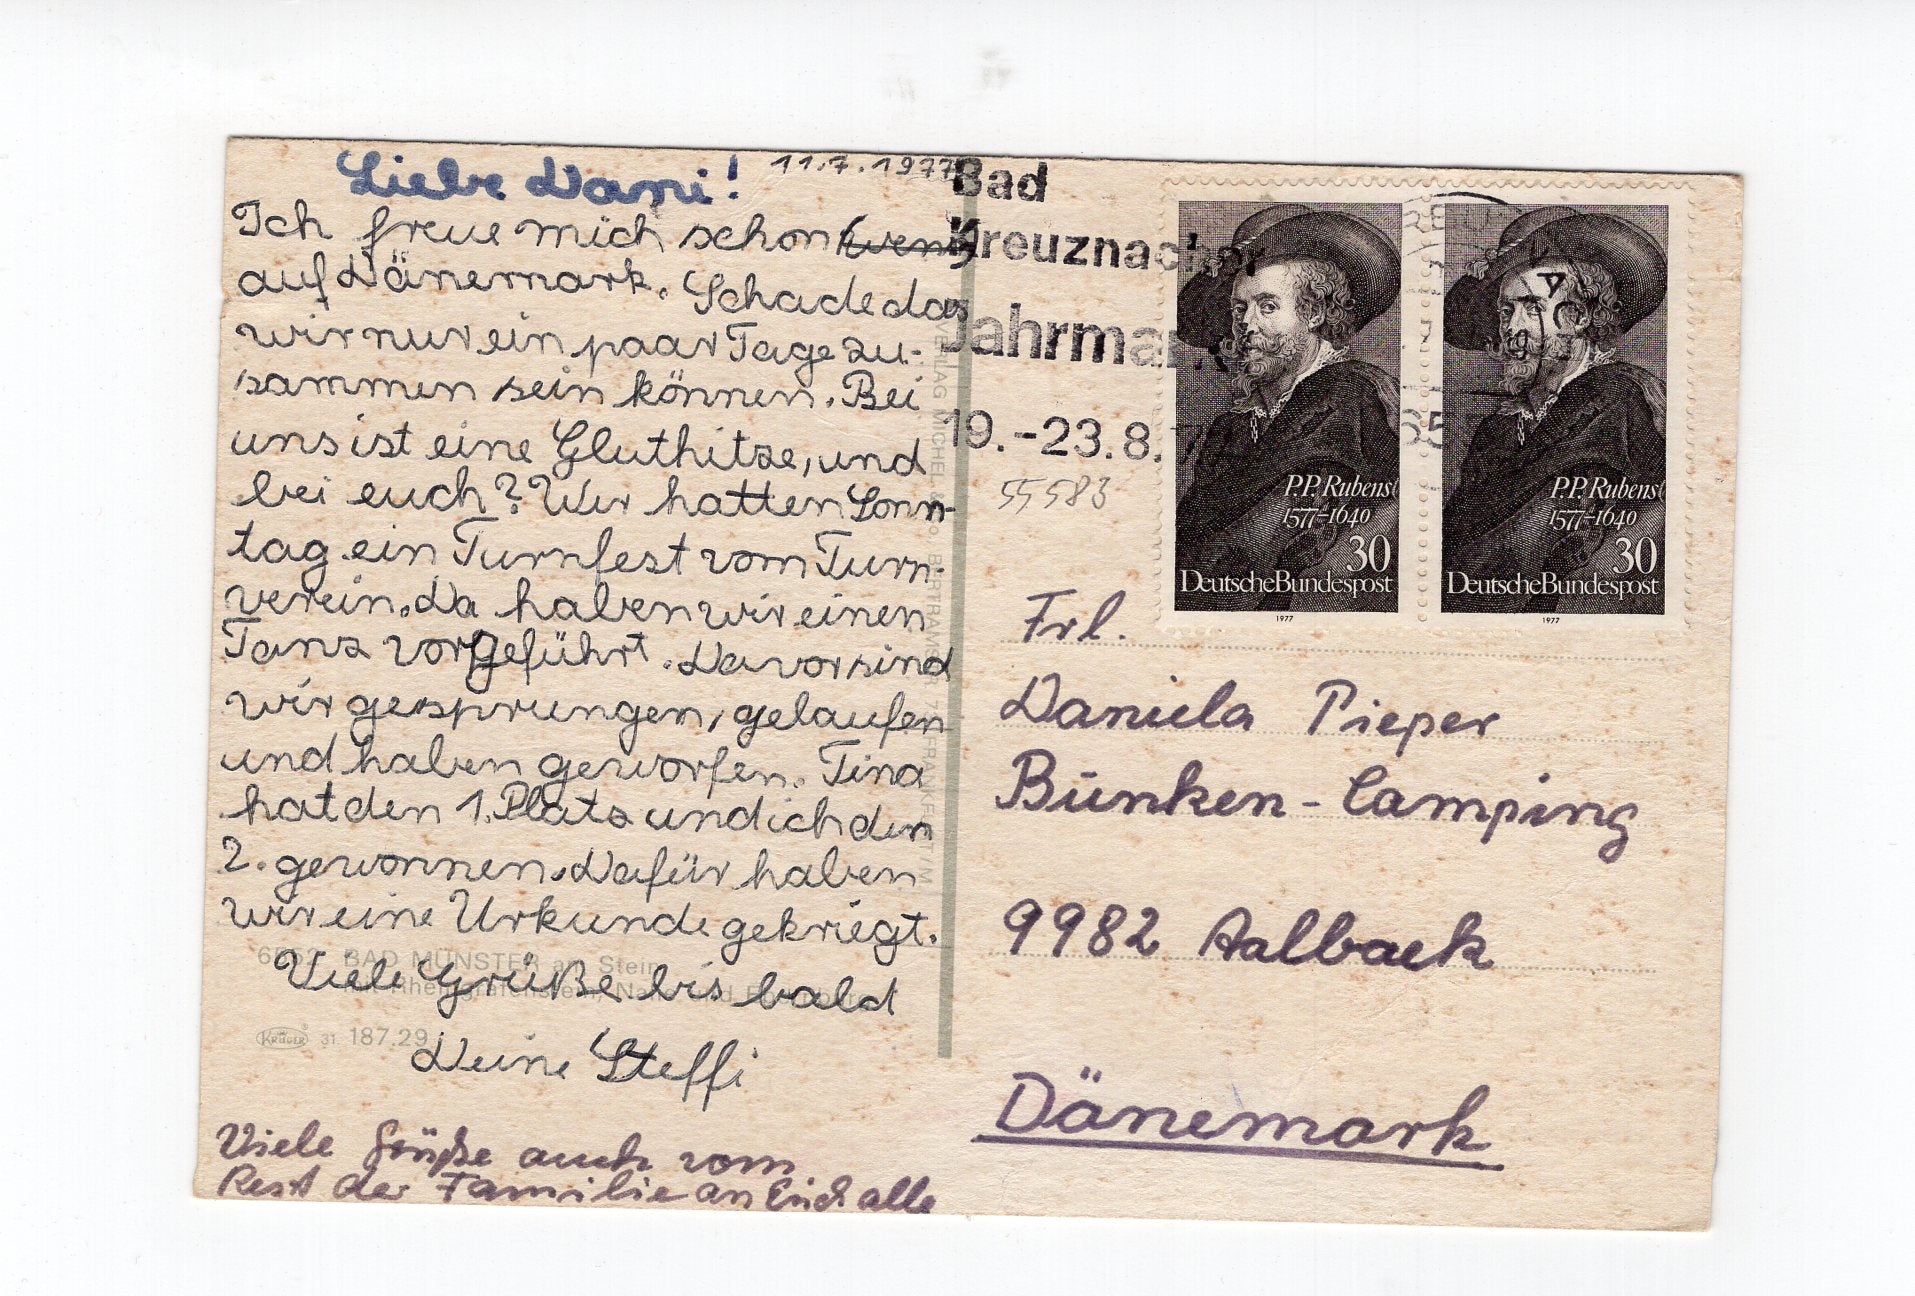 Liebe Dani! 11.7.1977
Ich freue mich schon
auf Dänemark. Schade das
wir nur ein paar Tage zu-
sammen sein können. Bei
uns ist eine Gluthitze, und
bei euch? Wir hatten Sonn-
tag ein Turnfest vom Turn-
verein. Da haben wir einen
Tanz vorgeführt. Davor sind
wir gesprungen, gelaufen
und haben geworfen. Tina
hat den 1. Platz und ich den
2. gewonnen. Dafür haben
wir eine Urkunde gekriegt.
Viele Grüße bis bald
Deine Steffi
Viele Grüße auch vom
Rest der Familie an Euch alle
6552 BAD MÜNSTER am Stein
KRÜGER 31. 187.29
VERLAG MICHEL
Bad
Kreuznacher
Jahrmarkt
19.-23.8.
55583
P.P. Rubens
1577-1640
30
Deutsche Bundespost
1977
P.P. Rubens
1577-1640
30
Deutsche Bundespost
1977
Frl.
Daniela Pieper
Bunken-Camping
9982 Aalbaek
Dänemark